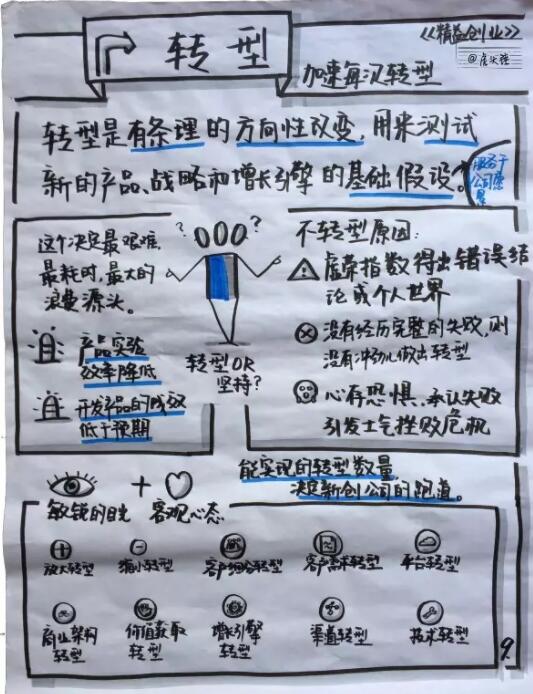 转型
《精益创业》
加速每次转型
转型是有条理的方向性改变,用来测试
新的产品、战略和增长引擎的基础假设。
服务于
公司愿
景
这个决定最艰难,
最耗时,最大的
浪费源头。
产品实验
效率降低
开发产品的成效
低于预期
? ?
转型OR
坚持?
不转型原因:
虚荣指数得出错误结
论或个人世界
没有经历完整的失败,则
没有冲动做出转型
心存恐惧,承认失败
引发士气挫败危机
敏锐的目光 + 客观心态
能实现的转型数量,
决定新创公司的跑道。
放大转型
缩小转型
客户细分转型
客户需求转型
平台转型
商业架构
转型
价值获取
转型
增长引擎
转型
渠道转型
技术转型
9.